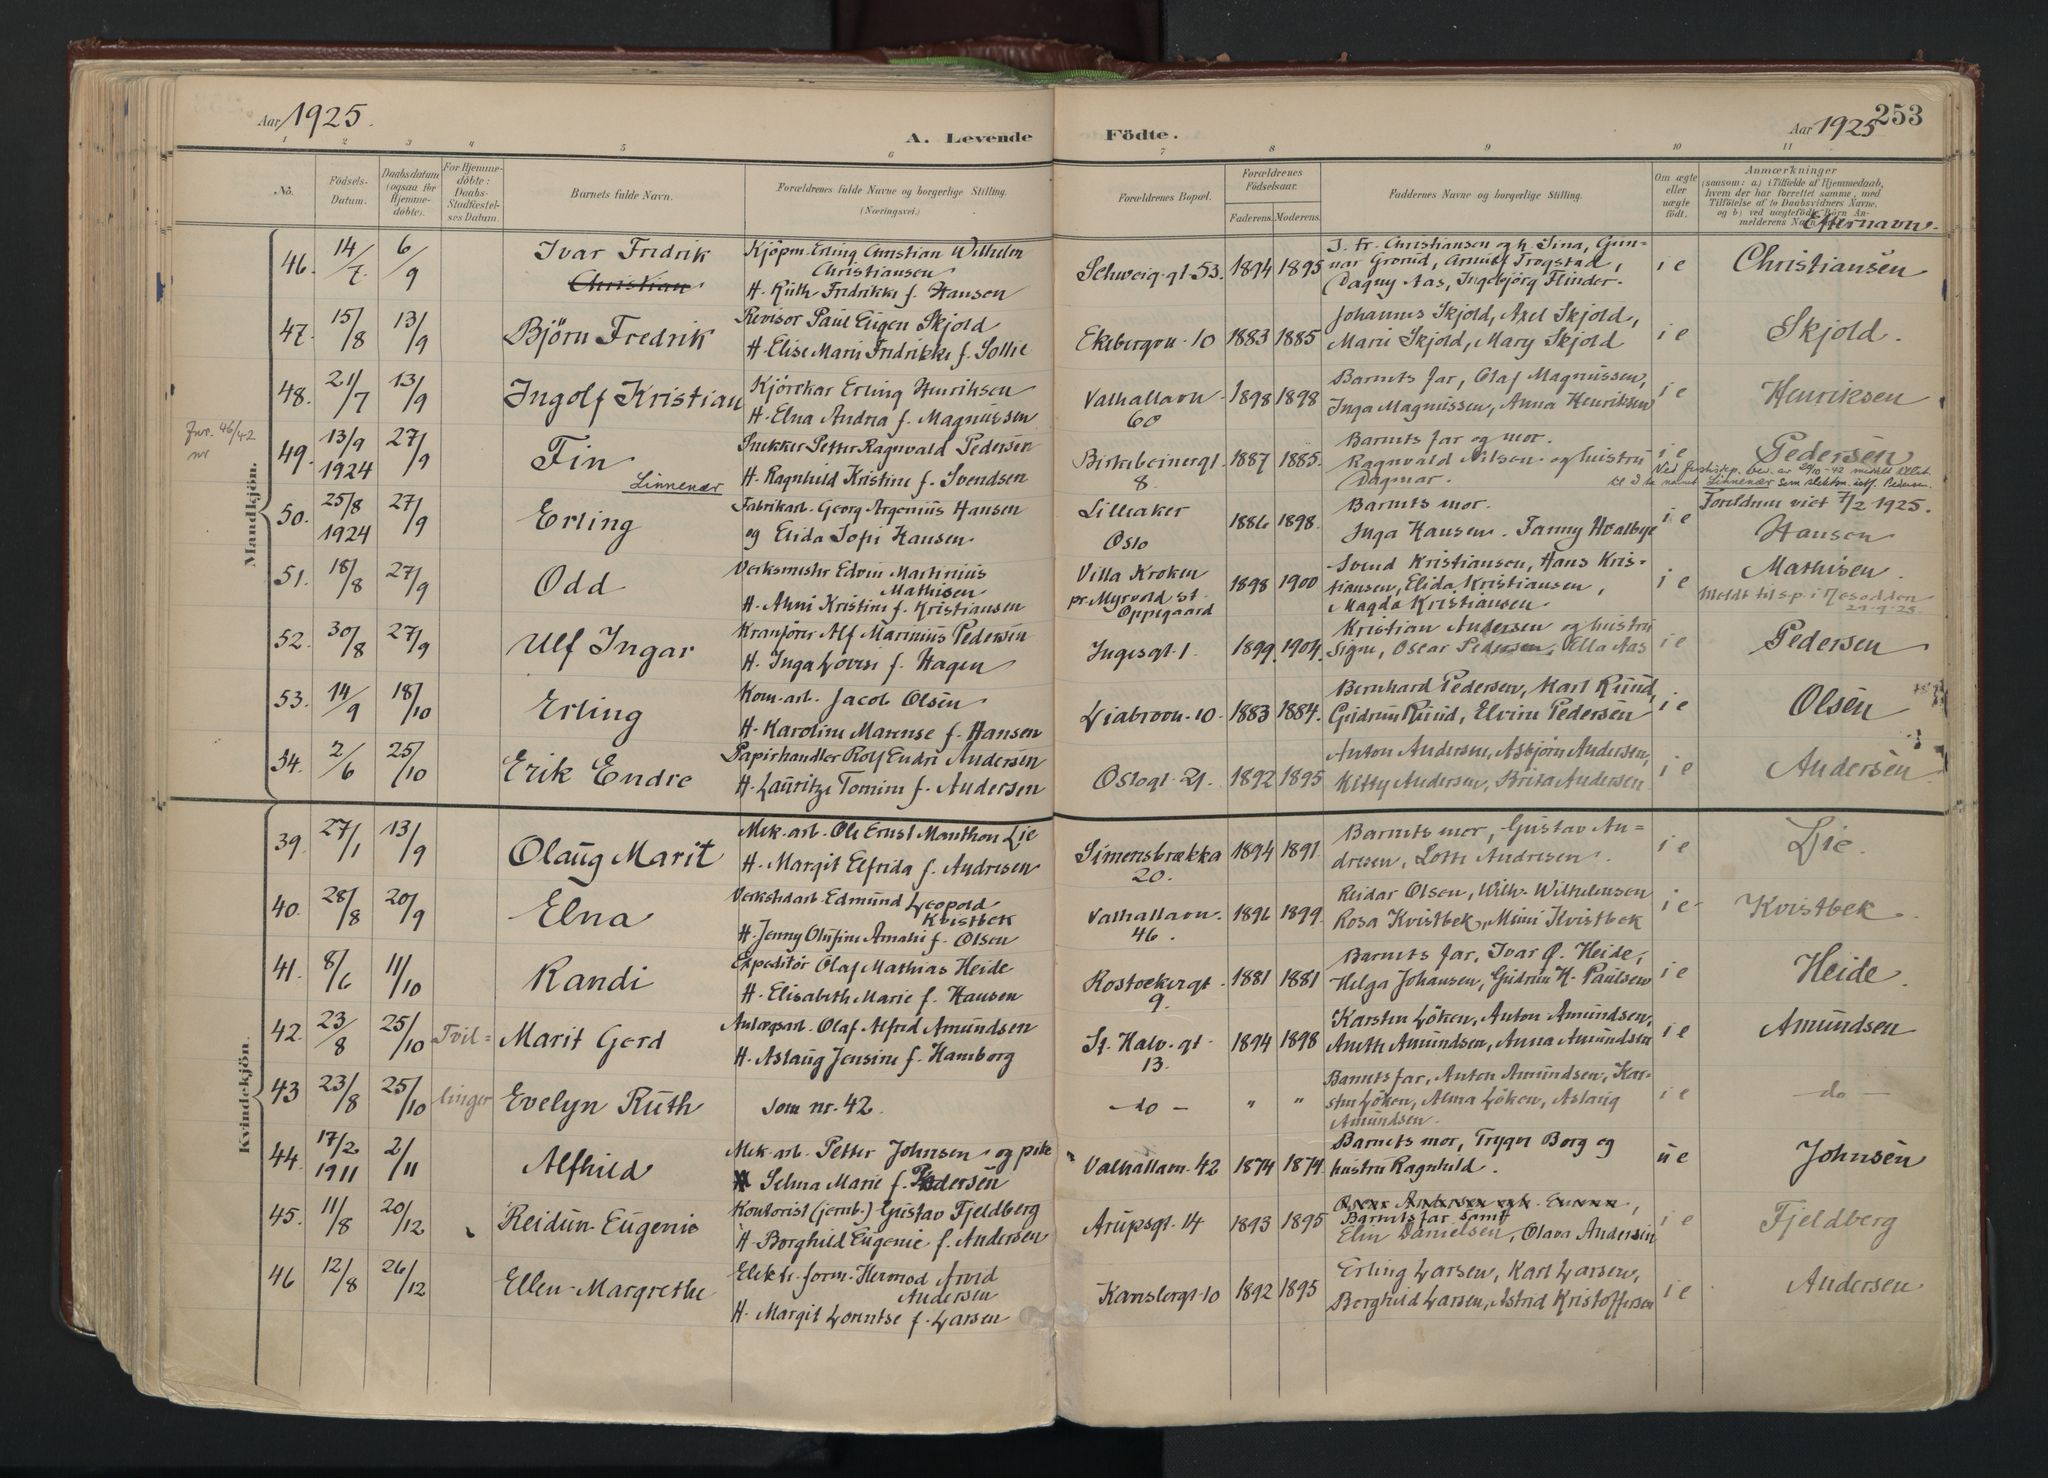 Aar 1925.
A. Levende Födte.
Aar 1925 253
1 2 3 4 5 6 7 8 9 10 11
No.
Födsels-Datum.
Daabsdatum (ogsaa for Hjemmedöbte).
For Hjemmedöbte: Daabs-Stadfæstelses Datum.
Barnets fulde Navn.
Forældrenes fulde Navne og borgerlige Stilling.
(Næringsvei.)
Forældrenes Bopæl.
Forældrenes Födselsaar.
Faderens. Moderens.
Faddernes Navne og borgerlige Stilling.
Om ægte eller uægte födt.
Anmærkninger
(saasom: a) i Tilfælde af Hjemmedaab, hvem der har forrettet samme, med Tilföielse af to Daabsvidners Navne, og b) ved uægtefödte Börn Anmelderens Navn
Efternavn.
Mandkjön.
46. 14/7 6/9 Ivar Fredrik Christian
Kjöpm. Erling Christian Wilhelm Christiansen
H. Ruth Fredrikke f. Hansen
Schweig.gt. 53. 1894 1895
J. Fr. Christiansen og h. Sina, Gunnar Grorud, Arnulf Trogstad,
Dagny Aas, Ingebjörg Flinder.
i e Christiansen
47. 15/8 13/9 Björn Fredrik
Revisor Paul Eugen Skjold
H. Elise Marie Fredrikke f. Sollie
Ekebergvn. 10 1883 1885
Johannes Skjold, Axel Skjold,
Marie Skjold, Mary Skjold
i e Skjold.
48. 21/7 13/9 Ingolf Kristian
Kjörekar Erling Henriksen
H. Elna Andrea f. Magnussen
Valhallavn. 60 1898 1898
Barnets far, Olaf Magnussen,
Inga Magnussen, Anna Henriksen
i e Henriksen
49. 13/9 1924 27/9 Fin Linnenær
Snekker Petter Ragnvald Pedersen
H. Ragnhild Kristine f. Svendsen
Birkebeinergt. 8. 1887 1885.
Barnets far og mor.
Ragnvald Nilsen og hustru
Dagmar.
i e Pedersen
50. 25/8 1924 27/9 Erling
Fabrikarb. Georg Argenius Hansen
og Elida Sofie Hansen
Lilleaker Oslo 1886 1898.
Barnets mor.
Inga Hansen. Fanny Hvalbye
i e Foreldrene viet 7/2 1925.
Hansen
51. 18/8 27/9 Odd
Verksmester Edvin Martinius Mathisen
H. Anni Kristine f. Kristiansen
Villa Kroken
pr. Myrvold st.
Oppegaard
1898 1900
Svend Kristiansen, Hans Kristiansen, Elida Kristiansen,
Magda Kristiansen
i e Mathisen.
Meldt til sp. i Nesodden
52. 30/8 27/9 Ulf Ingar
Kranförer Alf Marinius Pedersen
H. Inga Lovise f. Hagen
Ingesgt. 1. 1899. 1904.
Kristian Andersen og hustru
Signe, Oscar Pedersen, Ella Aas
i e Pedersen
53. 14/9 18/10 Erling
Kom. arb. Jacob Olsen
H. Karoline Marense f. Hansen
Ljabrovn. 10. 1883 1884.
Bernhard Pedersen, Karl Ruud,
Gudrun Ruud, Elvine Pedersen
i e Olsen
54. 2/6 25/10 Erik Endre
Papirhandler Rolf Endre Andersen
H. Lauritze Tomine f. Andersen
Oslogt. 21. 1892 1895
Anton Andersen, Asbjörn Andersen,
Kitty Andersen, Brita Andersen
i e Andersen
Kvindekjön.
39. 27/1 13/9 Olaug Marit
Mek. arb. Ole Ernst Manthon Lie
H. Margit Elfrida f. Andresen
Simensbrækka 20. 1894 1891
Barnets mor, Gustav Andresen, Lotte Andresen.
i e Lie.
40. 28/8 20/9 Elna
Verkstedarb. Edmund Leopold Kvistbek
H. Jenny Olufine Amalie f. Olsen
Valhallavn. 46. 1896 1899
Reidar Olsen, Wilh. Wilhelmsen
Rosa Kvistbek, Mimi Kvistbek
i e Kvistbek
41. 8/6 11/10 Randi
Expeditör Olaf Mathias Heide
H. Elisabeth Marie f. Hansen
Rostockergt. 9 1881 1881
Barnets far, Ivar Ø. Heide,
Helga Johansen, Gudrun H. Paulsen
i e Heide.
42. 23/8 25/10 Tvil= Marit Gerd
Anlægsarb. Olaf Alfred Amundsen
H. Aslaug Jensine f. Hamborg
St. Halv. gt. 13. 1894 1898
Karsten Löken, Anton Amundsen,
Anette Amundsen, Anna Amundsen
i e Amundsen
43 23/8 25/10 linger Evelyn Ruth
som nr. 42.
- do - " "
Barnets far, Anton Amundsen, Karsten Löken, Alma Löken, Aslaug
Amundsen.
i e - do -
44. 17/2 1911 2/11 Alfhild
Mek. arb. Petter Johnsen og pike
Selma Marie f. Pedersen
Valhallavn. 42 1874 1874
Barnets mor, Trygve Borg og
hustru Ragnhild.
u e Johnsen
45. 11/8 20/12 Reidun Eugenie
Kontorist (jernb.) Gustav Fjeldberg
H. Borghild Eugenie f. Andersen
Arupsgt. 14 1893 1895
Barnets far samt
Elin Danielsen, Olava Andersen
i e Fjeldberg
46 12/8 26/12 Ellen Margrethe
Elektr. form. Hermod Arvid Andersen
H. Margit Lorentse f. Larsen
Kanslergt. 10 1892 1895
Erling Larsen, Karl Larsen,
Borghild Larsen, Astrid Kristoffersen
i e Andersen